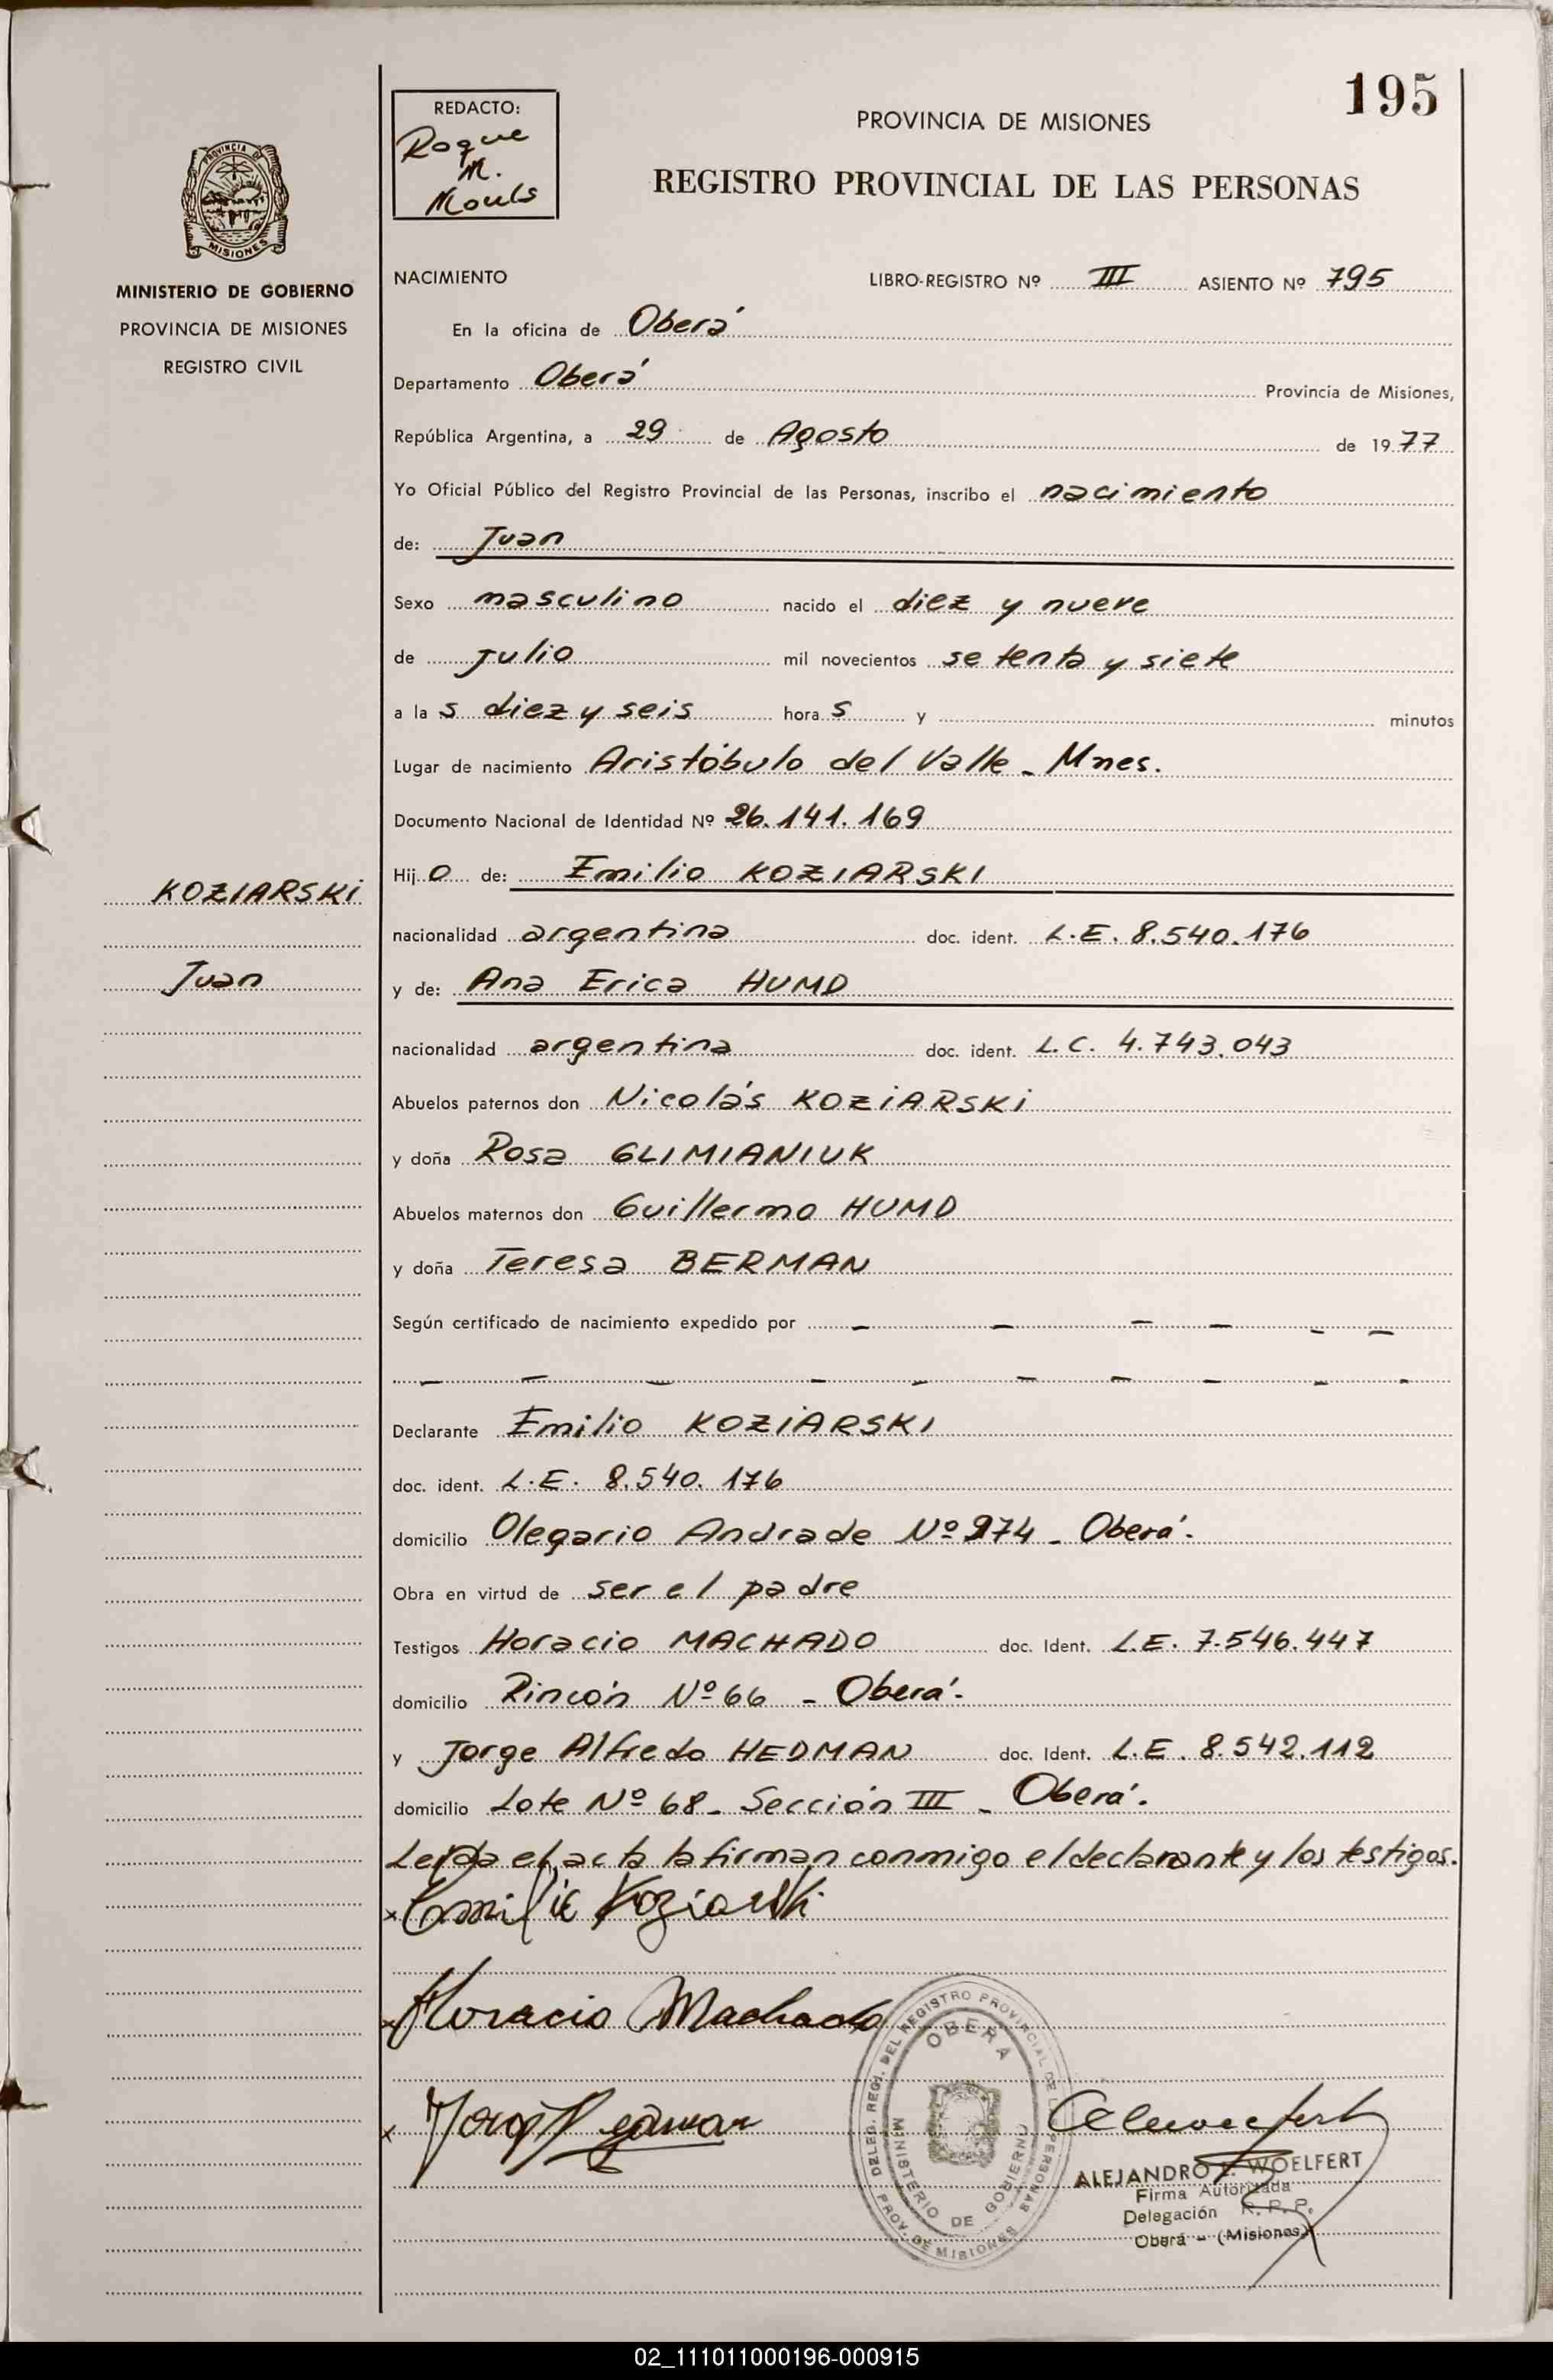 195
REDACTO:
Roque
M.
PROVINCIA DE MISIONES
REGISTRO PROVINCIAL DE LAS PERSONAS
PROVINCIA DE
MISIONES
MINISTERIO DE GOBIERNO
PROVINCIA DE MISIONES
REGISTRO CIVIL
NACIMIENTO LIBRO-REGISTRO Nº III ASIENTO Nº 795
En la oficina de Oberá
Departamento Oberá Provincia de Misiones,
República Argentina, a 29 de Agosto de 1977
Yo Oficial Público del Registro Provincial de las Personas, inscribo el nacimiento
de: Juan
Sexo masculino nacido el diez y nueve
de julio mil novecientos setenta y siete
a la s diez y seis hora s y minutos
Lugar de nacimiento Aristóbulo del Valle - Mnes.
Documento Nacional de Identidad Nº 26.141.169
KOZIARSKI
Juan
Hij o de: Emilio KOZIARSKI
nacionalidad argentina doc. ident. L.E. 8.540.176
y de: Ana Erica HUMD
nacionalidad argentina doc. ident. L.C. 4.743.043
Abuelos paternos don Nicolás KOZIARSKI
y doña Rosa GLIMIANIUK
Abuelos maternos don Guillermo HUMD
y doña Teresa BERMAN
Según certificado de nacimiento expedido por - - - - - -
- - - - - - - - - -
Declarante Emilio KOZIARSKI
doc. ident. L.E. 8.540.176
domicilio Olegario Andrade Nº 974 - Oberá.
Obra en virtud de ser el padre
Testigos Horacio MACHADO doc. Ident. L.E. 7.546.447
domicilio Rincón Nº 66 - Oberá.
y Jorge Alfredo HEDMAN doc. Ident. L.E. 8.542.112
domicilio Lote Nº 68 - Sección III - Oberá.
Leída el acta la firman conmigo el declarante y los testigos.
x Emilio Koziarski
x Horacio Machado
x
DELEG. REGI. DEL REGISTRO PROVINCIAL DE LAS PERSONAS
OBERA
MINISTERIO DE GOBIERNO
PROV. DE MISIONES
ALEJANDRO WOELFERT
Firma Autorizada
Delegación R.P.P.
Oberá - (Misiones)
02_111011000196-000915